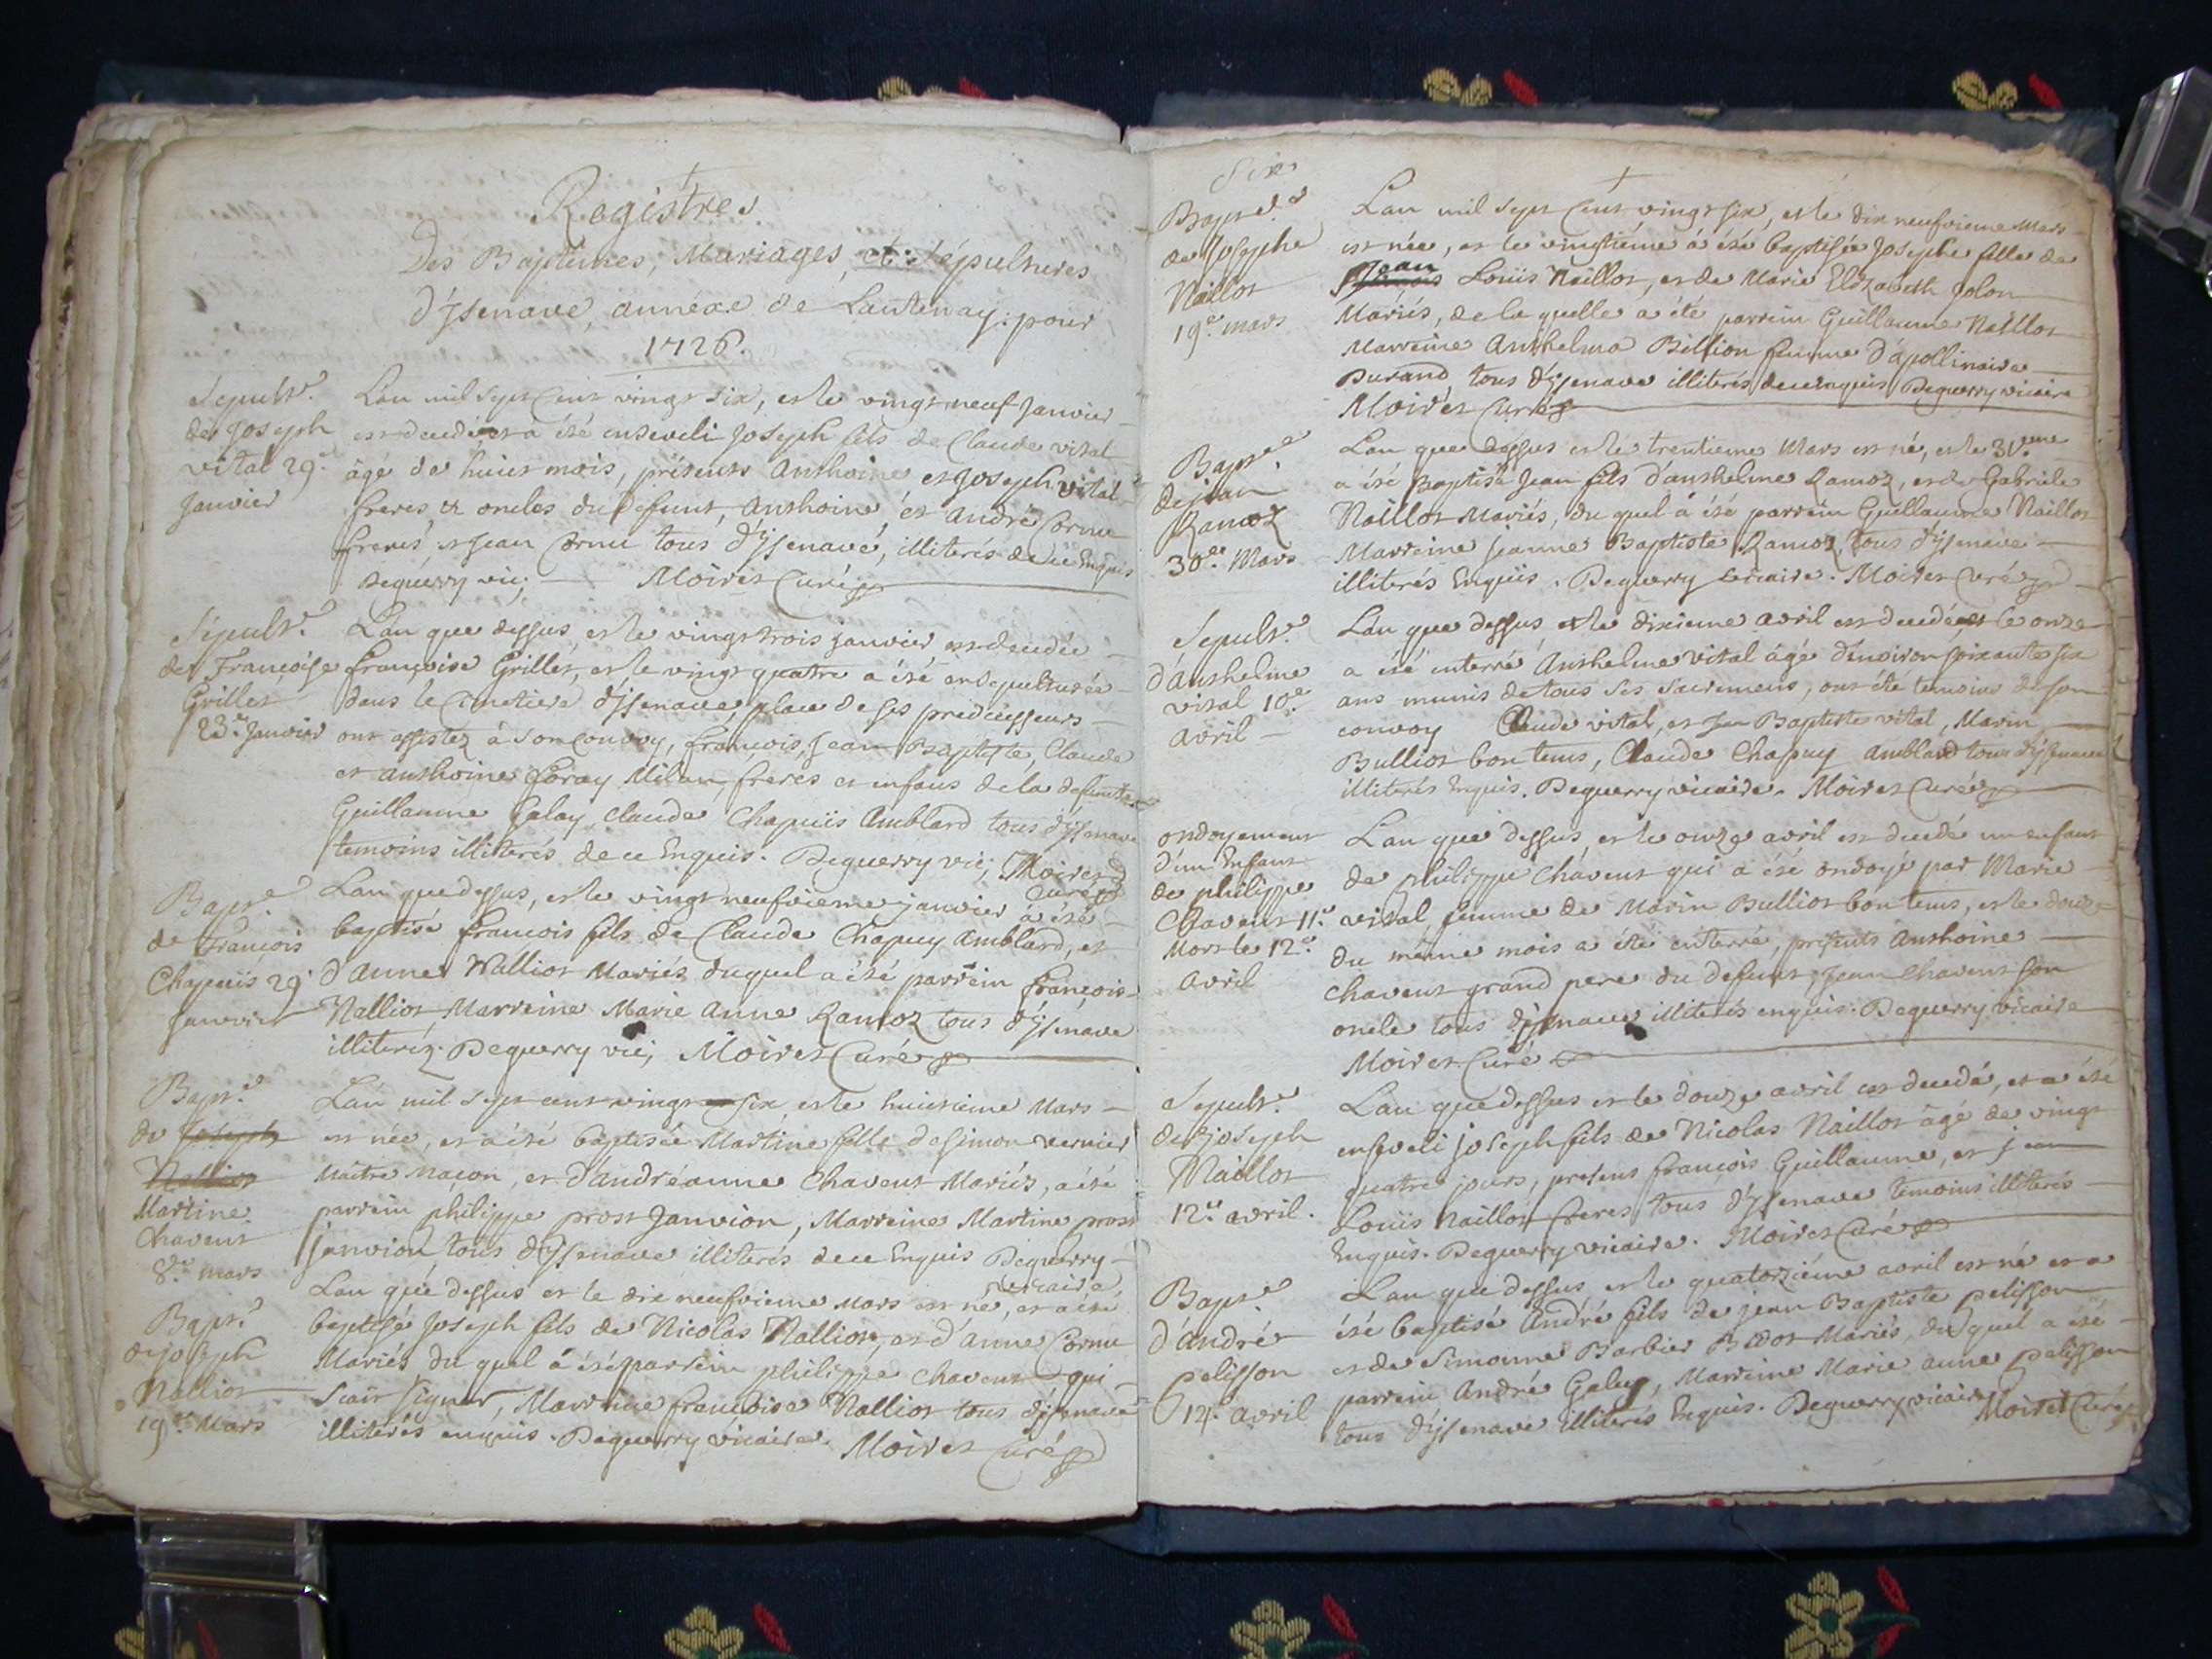 Registres
Des Baptêmes, Mariages, et Sépultures
d'Jsenave, annéxe de Lantenay: pour
1726.
Sépult.e
de Joseph
vital 29.e
Janvier
L'an mil sept cent vingt six, et le vingt neuf Janvier
est decedé et a été enseveli Joseph fils de Claude vital
âgé de huict mois, présents Anthoine et Joseph vital
freres et oncles du Defunt, Anthoine et André Cornu
freres et Jean Cornu tous d'Jsenave, illiterés de ce Enquis
Deguerry vic; Moiret Curé
Sépult.e
de Françoise
Grillet
23.e Janvier
L'an que dessus, et le vingt trois janvier est decedée
françoise Grillet, et le vingt quatre a été ensepulturée
dans le Cimetiere d'Jsenave, place de ses predecesseurs
ont assistez à son Convoy, françois, Jean Baptiste, Claude
et anthoine Milan, freres et enfans de la defunte
Guillaume Galay, Claude Chapuis Amblard tous d'Jsenave
temoins illiterés de ce Enquis. Deguerry vic; Moiret
Curé
Bapt.e
de François
Chapuis 29.
Janvier
L'an que dessus, et le vingt neufvieme janvier a été
baptisé françois fils de Claude Chapuy Amblard, et
d'anne Nalliot Mariés duquel a été parrein françois
Nalliot, Marreine Marie Anne Ramoz tous d'Jsenave
illiteréz. Deguerry vic; Moiret Curé
Bapt.e
de Joseph
Nalliot
Martine
Chavent
8.e mars
L'an mil sept cent vingt six et le huictieme Mars
est née, et a été baptisée Martine fille de Simon vernier
Maitre Maçon, et d'andréanne Chavent Mariés, a été
parrein philippe prost Janvion, Marreine Martine prost
janvion, tous d'Jsenave illiterés de ce Enquis Deguerry
vicaire
Bapt.e
de joseph
Nalliot
19.e Mars
L'an que dessus et le dix neufvieme Mars est né, et a été
baptisé Joseph fils de Nicolas Nalliot, et d'anne Cornu
Mariés du quel a été parrein philippe Chavent qui
Scait signer, Marreine françoise Nalliot tous d'jsenave
illiterés enquis. Deguerry vicaire. Moiret Curé
Six
Bapt.e
de Josephe
Naillot
19.e mars
L'an mil sept Cent vingt six, et le dix neufvieme Mars
est née, et le vingtième a été baptisée Josephe fille de
Jean Loüis Naillot, et de Marie Elizabeth Jolon
Mariés, de la quelle a été parrein Guillaume Naillot
Marreine Anthelma Billion femme d'apollinaire
Durand, tous d'jsenave illiterés de ce requis Deguerry vicaire
Moiret Curé
Bapt.e
de jean
Ramoz
30.e Mars
L'an que Dessus et le trentieme Mars est né, et le 31.eme
a été Baptisé Jean fils d'anthelme Ramoz, et de Gabriele
Naillot Mariés, du quel a été parrein Guillaume Naillot
Marreine Jeanne Baptiste Ramoz, tous d'jsenave
illiterés Enquis. Deguerry vicaire. Moiret Curé
Sepult.e
d'Anthelme
vital 10.e
Avril
L'an que dessus et le dixieme avril est decedé et le onze
a été enterré Anthelme vital âgé d'environ soixante six
ans munis de tous ses sacremens, ont été temoins de son
convoy Claude vital, et Jean Baptiste vital, Marin
Bulliot bon tems, Claude Chapuy Amblard tous d'jsenave
illiterés Enquis. Deguerry vicaire. Moiret Curé
ondoyement
d'un Enfant
de philippe
Chavent 11.e
Mort le 12.e
Avril
L'an que dessus, et le onze avril est decedé un enfant
de philippe Chavent qui a été ondoyé par Marie
vital femme de Marin Bulliot bon tems, et le douze
du même mois a été enterré, présents Anthoine
Chavent grand pere du defunt, Jean Chavent son
oncle tous d'jsenave illiterés enquis. Deguerry vicaire
Moiret Curé
Sepult.e
de joseph
Naillot
12.e avril.
L'an que dessus et le douze avril est decedé, et a été
enseveli joseph fils de Nicolas Naillot âgé de vingt
quatre jours, presens françois Guillaume, et jean
Loüis Naillot freres tous d'Jsenave temoins illiterés
Enquis. Deguerry vicaire. Moiret Curé
Bapt.e
d'André
pelisson
14.e avril
L'an que dessus, et le quatorzième avril est né et a
été baptisé André fils de jean Baptiste pelisson
et de Simonne Barbier Bidot Mariés, du quel a été
parrein André Galay, Marreine Marie anne pelisson
tous d'jsenave illiterés Enquis. Deguerry vicaire Moiret Curé